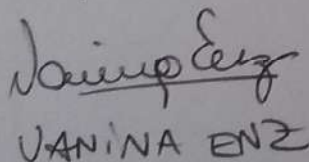 Vanina Enz
VANINA ENZ